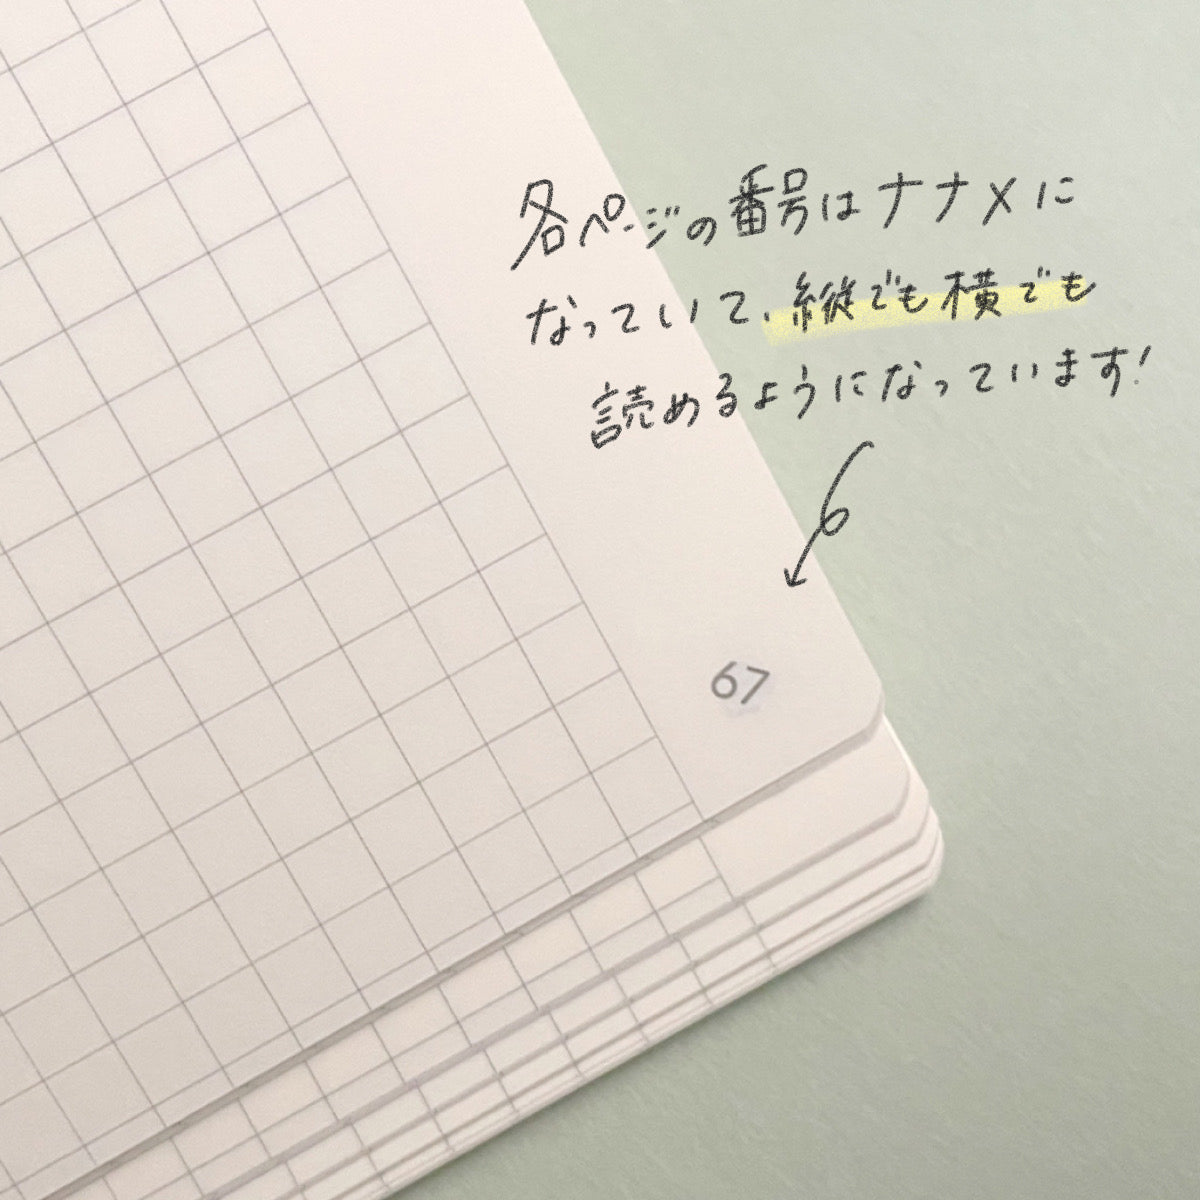 各ページの番号はナナメに
なっていて、縦でも横でも
読めるようになっています!
67